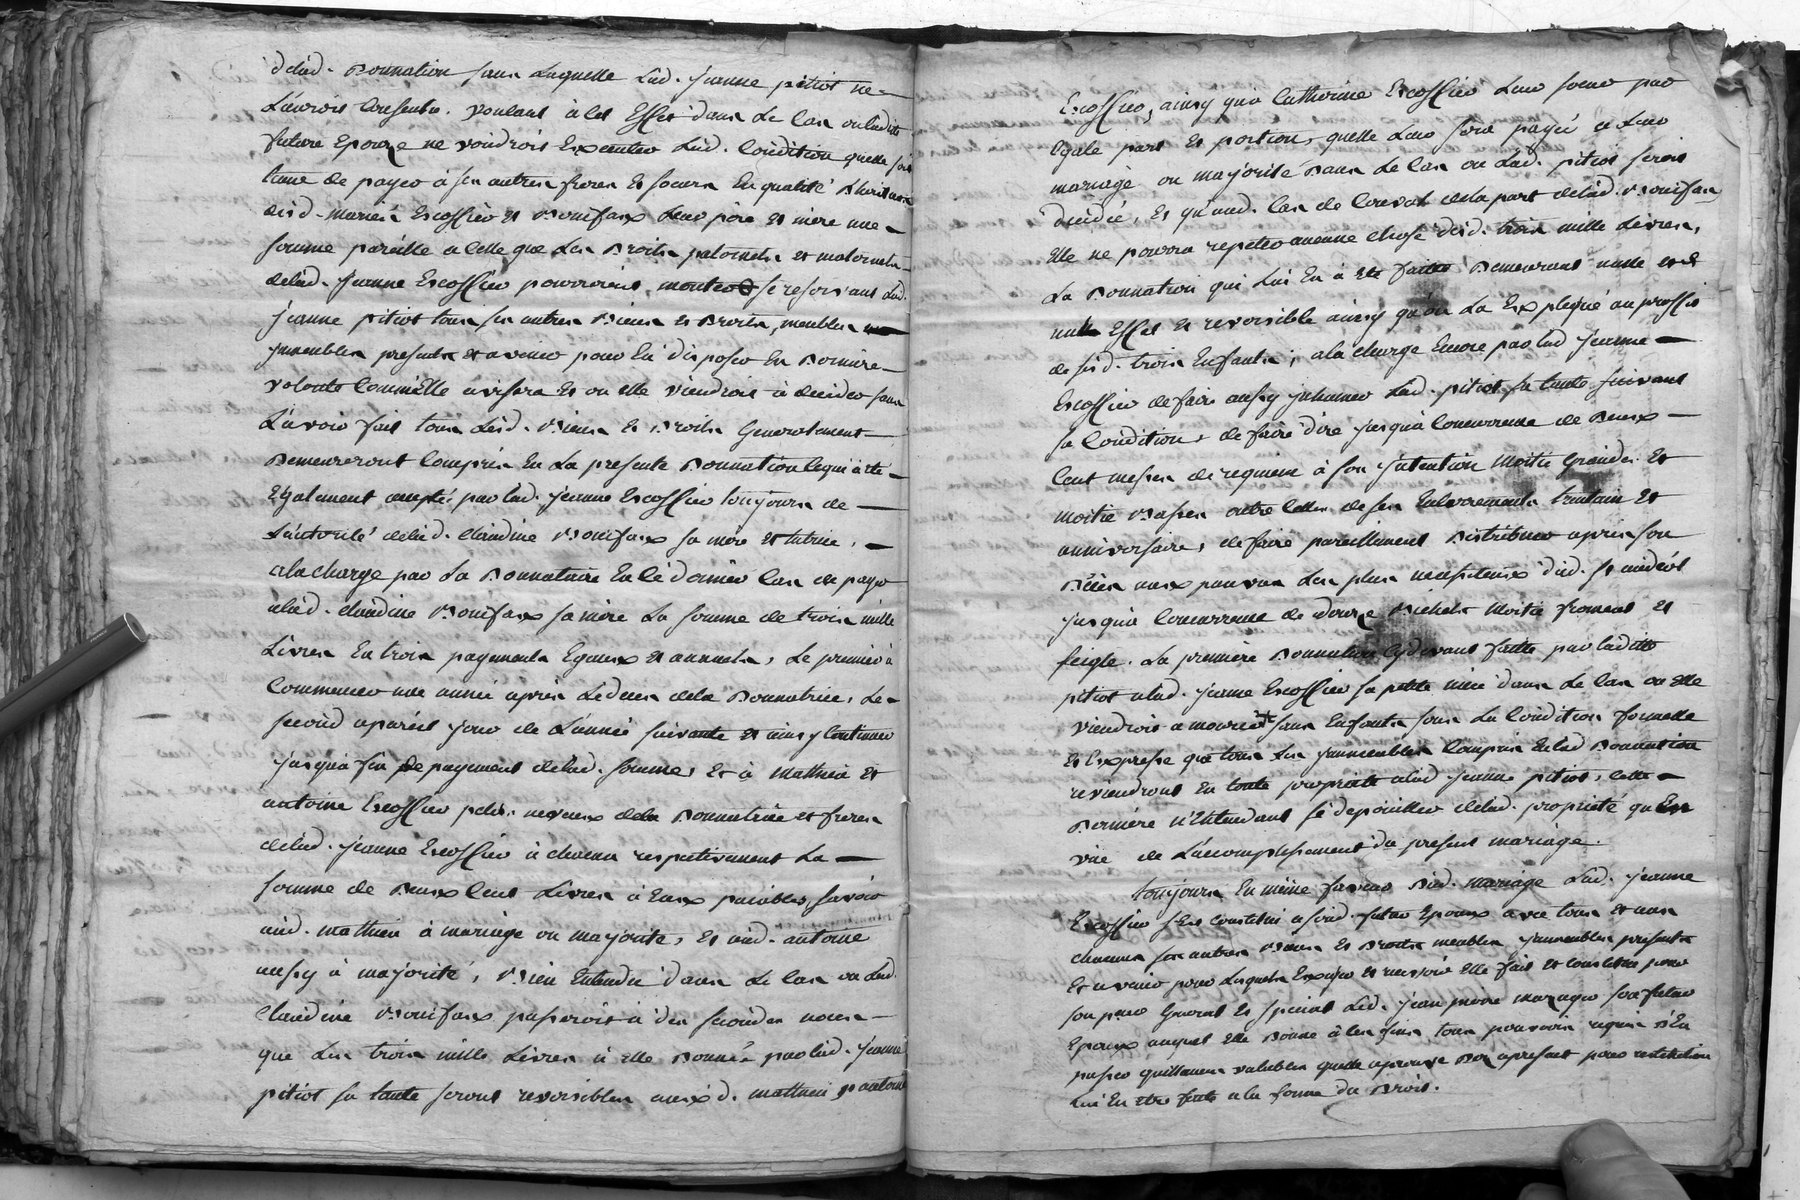 delad. Donnation sans Laquelle Lad. jeanne pitiot ne
L'auroit Consentu. voulant à Cet Effet dans Le Cas ou ladite
future Epouze ne voudroit Executer Lad. Condition quelle soit
tenue de payer à ses autres freres Et soeurs En qualité d'heritiers
desd. mariés Escoffier et Bonifaux Leur pere et mere une
somme pareille a Celle que Les Droits paternels et maternels
delad. jeanne Escoffier pourroient monter se reservant Lad.
jeanne pitiot tous ses autres Biens Et Droits, meubles
jmmeubles presents et avenir pour En disposer En Derniere
volonté Comm'Elle avisera Et ou elle viendroit à deceder sans
L'avoir fait tous Lesd. Biens Et Droits Generalement
Demeureront Compris En La presente Donnation Ce qui a été
Egalement accepté par lad. jeanne Escoffier toujours de
L'autorité delad. claudine Bonifaux sa mere et tutrice,
ala charge par La Donnataire En Ce dernier Cas de payer
alad. claudine Bonifaux sa mere La somme de trois mille
Livres En trois payements Egaux et annuels, Le premier à
Commencer une année après Le deces dela Donnatrice, Le
second apareil jour de L'année suivante et ainsy Continuer
jusqu'a fin de payement delad. somme, Et à mathieu Et
antoine Escoffier petits neveux dela Donnatrice et freres
delad. jeanne Escoffier à chacun respectivement La
somme de Deux Cent Livres à Eux payables, savoir
aud. mathieu à mariage ou majorité, Et aud. antoine
aussy à majorité, Bien Entendu dans Le Cas ou Lad
Claudine Bonifaux passeroit à des secondes noces
que Les trois mille Livres à elle Donnés par lad. jeanne
pitiot sa tante seront reversibles auxd. mathieu, antoine
Escoffier, ainsy qu'a Catherine Escoffier Leur soeur par
Egale part Et portion, quelle Leur sera payée a Leur
mariage ou majorité Dans Le Cas ou Lad. pitiot seroit
decedée, Et qu'aud. Cas de Convol dela part delad. Bonifaux
Elle ne pourra repeter aucune chose desd. trois mille Livres,
La Donnation qui Lui En a été faitte Demeurant nulle et de
nulle Effet et reversible ainsy qu'on La Expliqué au proffit
de sesd. trois Enfants; ala charge Encore par lad jeanne
Escoffier de faire aussy jnhumer Lad. pitiot sa tante suivant
sa Condition, de faire dire jusqu'a Concurrence de Deux
Cent messes de requiem à son jntention Moitié Grandes Et
Moitié Basses outre Celles de ses Enterrements trentain Et
anniversaire, de faire pareillement Distribuer après son
Deces aux pauvres Les plus necessiteux dud. st andéol
jusqu'a Concurrence de douze Bichets Moitié froment Et
seigle. La premiere Donnation Cydevant faitte par laditte
pitiot alad. jeanne Escoffier sa petite niece dans Le Cas ou elle
viendroit a mourir sans Enfants sous La Condition formelle
Et Expresse que tous Les jmmeubles Compris En lad Donnation
reviendront En toute propriété alad jeanne pitiot, Cette
Derniere n'Entendant se depouiller delad. propriété qu'En
vüe de L'accomplissement du present mariage.
toujours En même faveur Dud. mariage Lad. jeanne
Escoffier s'Est Constitué asond. futur Epoux avec tous Et uns
chacuns ses autres Biens Et Droits meubles jmmeubles presents
Et avenir pour Lesquels Exiger et recevoir Elle fait et Constitue pour
son pror General Et special Led. jean pierre mazagu son futur
Epoux auquel Elle Donne à Ces fins tous pouvoirs requis D'En
passer quittances valables quelle aprouve Dez apresent pour restitution
Lui En etre faite a la forme du Droit.